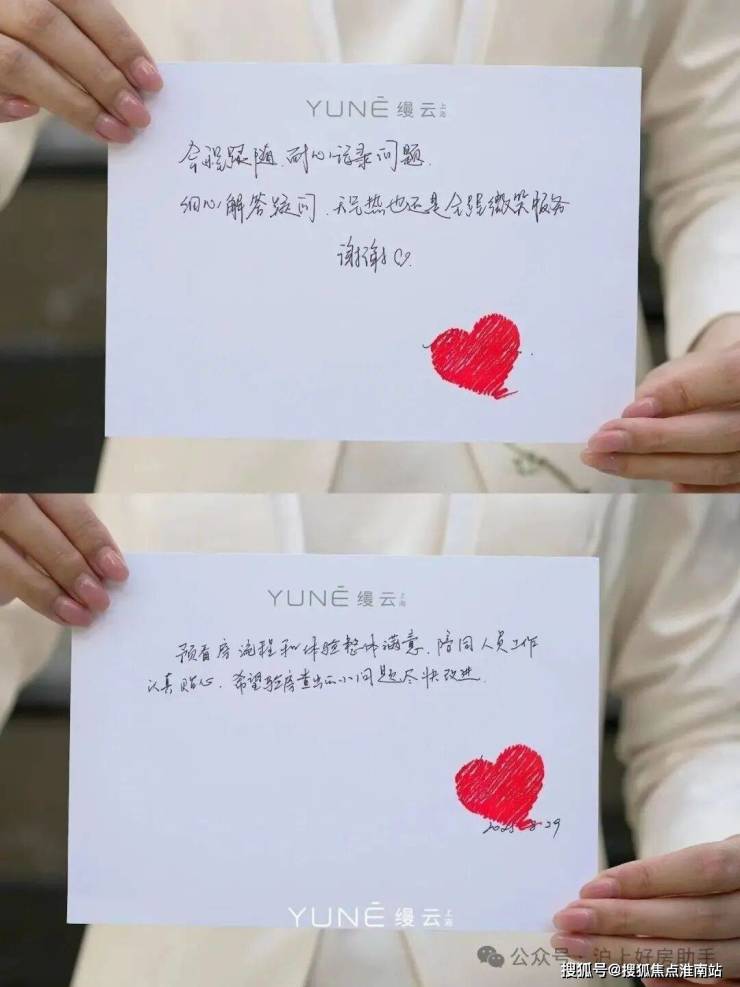 YUNÉ 缦云 上海
全程跟随、耐心记录问题.
细心解答疑问、天气热也还是全程微笑服务
谢谢♡.
YUNÉ 缦云 上海
预看房流程和体验整体满意、陪同人员工作
认真贴心、希望验房查出的小问题尽快改进.
2025-8-29
YUNÉ 缦云 上海
公众号·沪上好房助手
搜狐号@搜狐焦点淮南站